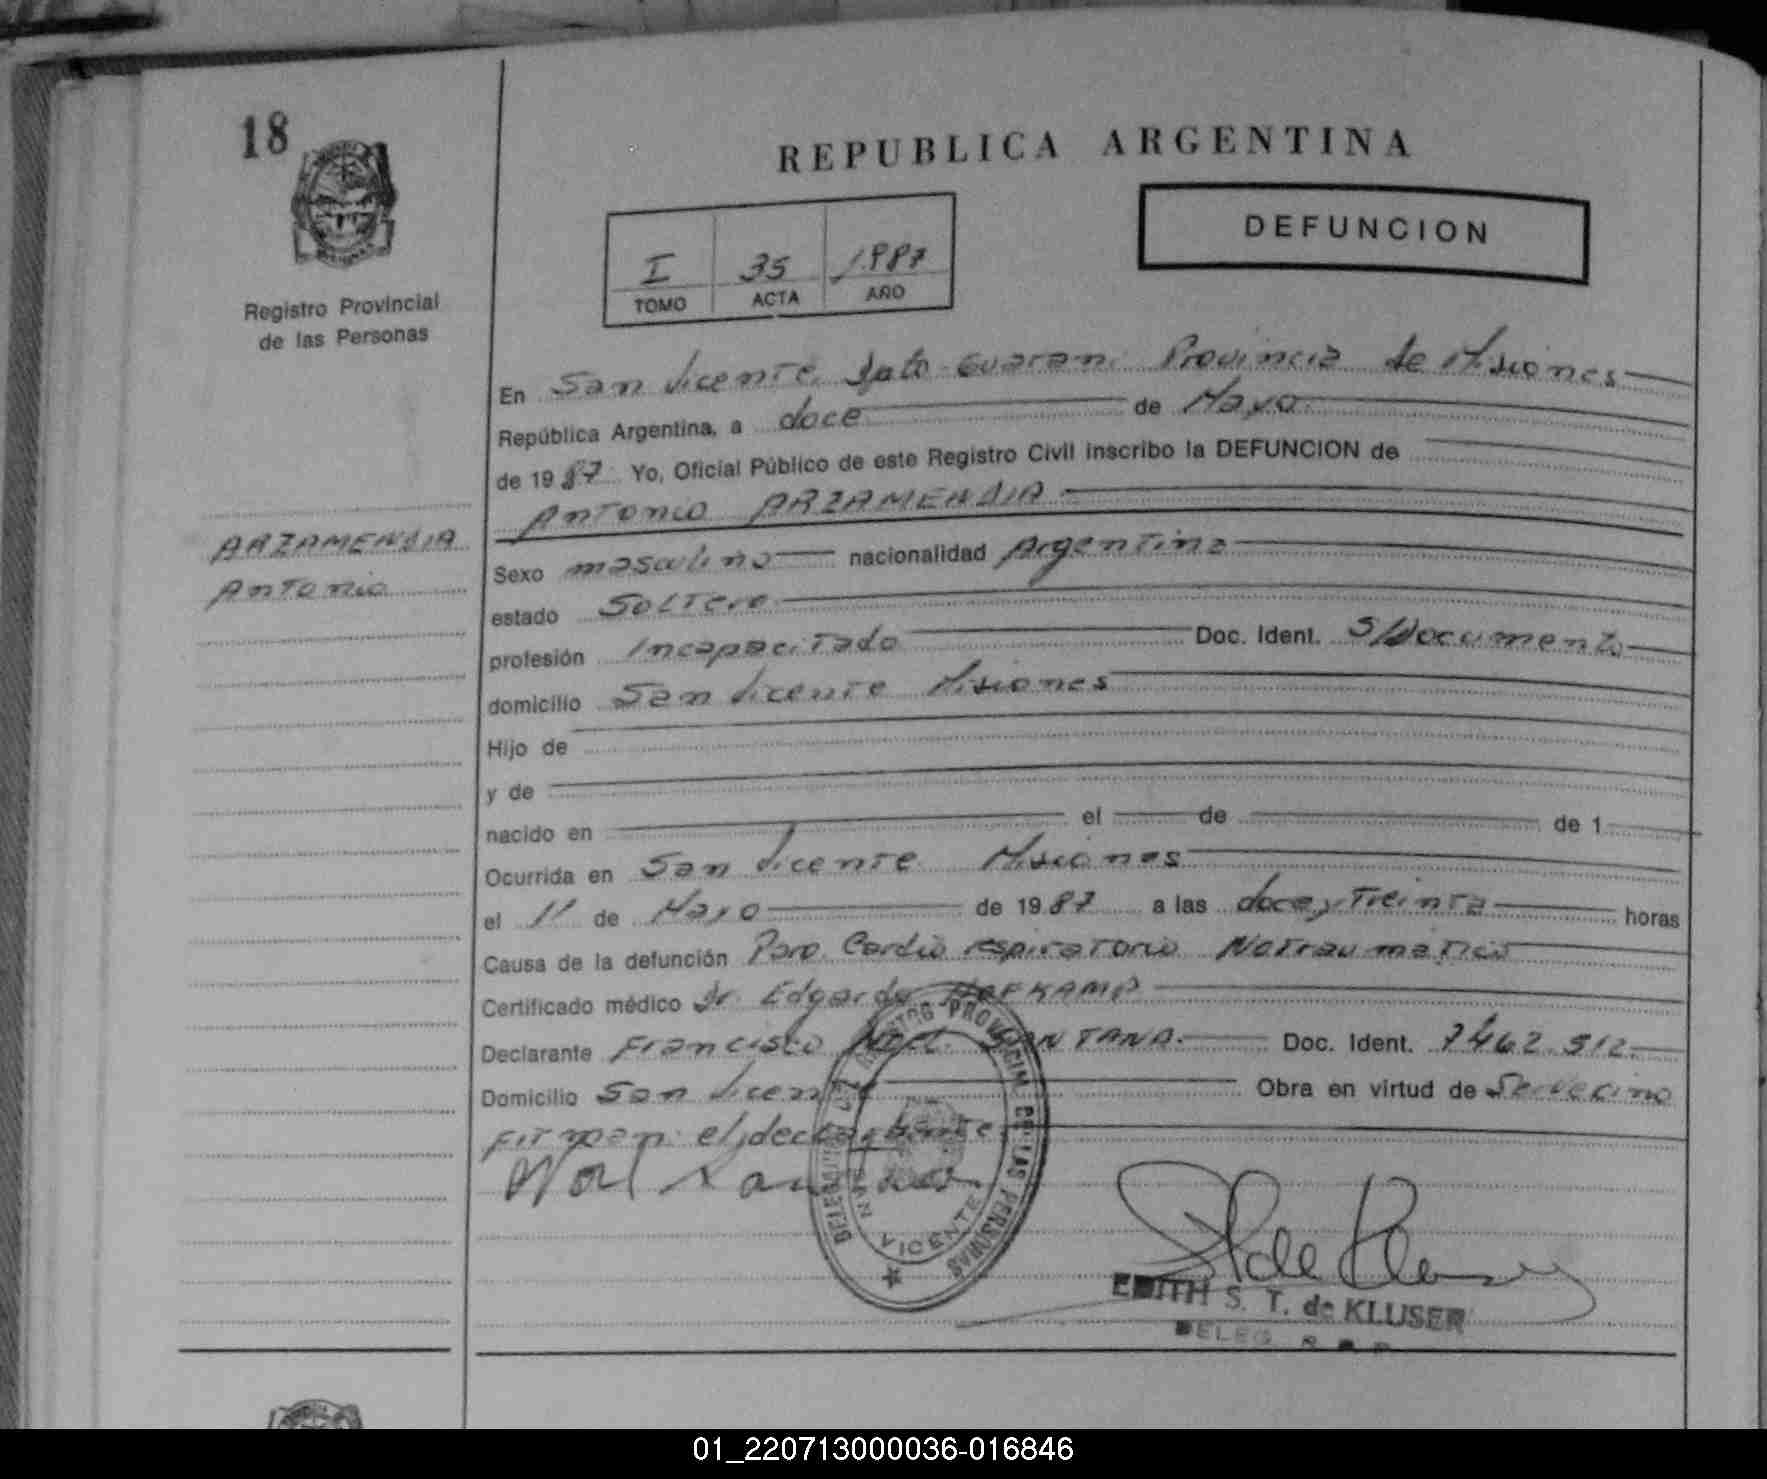 18
REPUBLICA ARGENTINA
DEFUNCION
I 35 1987
TOMO ACTA AÑO
Registro Provincial
de las Personas
En San Vicente, Dpto Guarani Provincia de Misiones
República Argentina, a doce de Mayo
de 1987 Yo, Oficial Público de este Registro Civil inscribo la DEFUNCION de
Antonio ARZAMENDIA
ARZAMENDIA
Antonio
Sexo masculino nacionalidad Argentina
estado Soltero
profesión Incapacitado Doc. Ident. S/Documento
domicilio San Vicente Misiones
Hijo de
y de
nacido en el de de 1
Ocurrida en San Vicente Misiones
el 11 de Mayo de 1987 a las doce y Treinta horas
Causa de la defunción Paro Cardio respiratorio No Traumatico
Certificado médico Dr. Edgardo HOFKAMP
Declarante Francisco Noel SANTANA. Doc. Ident. 7.462.512
Domicilio San Vicente Obra en virtud de
Firman: el declarante
Noel Santana
DELEGACION REGISTRO PROVINCIAL DE LAS PERSONAS
SAN VICENTE
EDITH S. T. de KLUSER
DELEG. R. P. P.
01_220713000036-016846